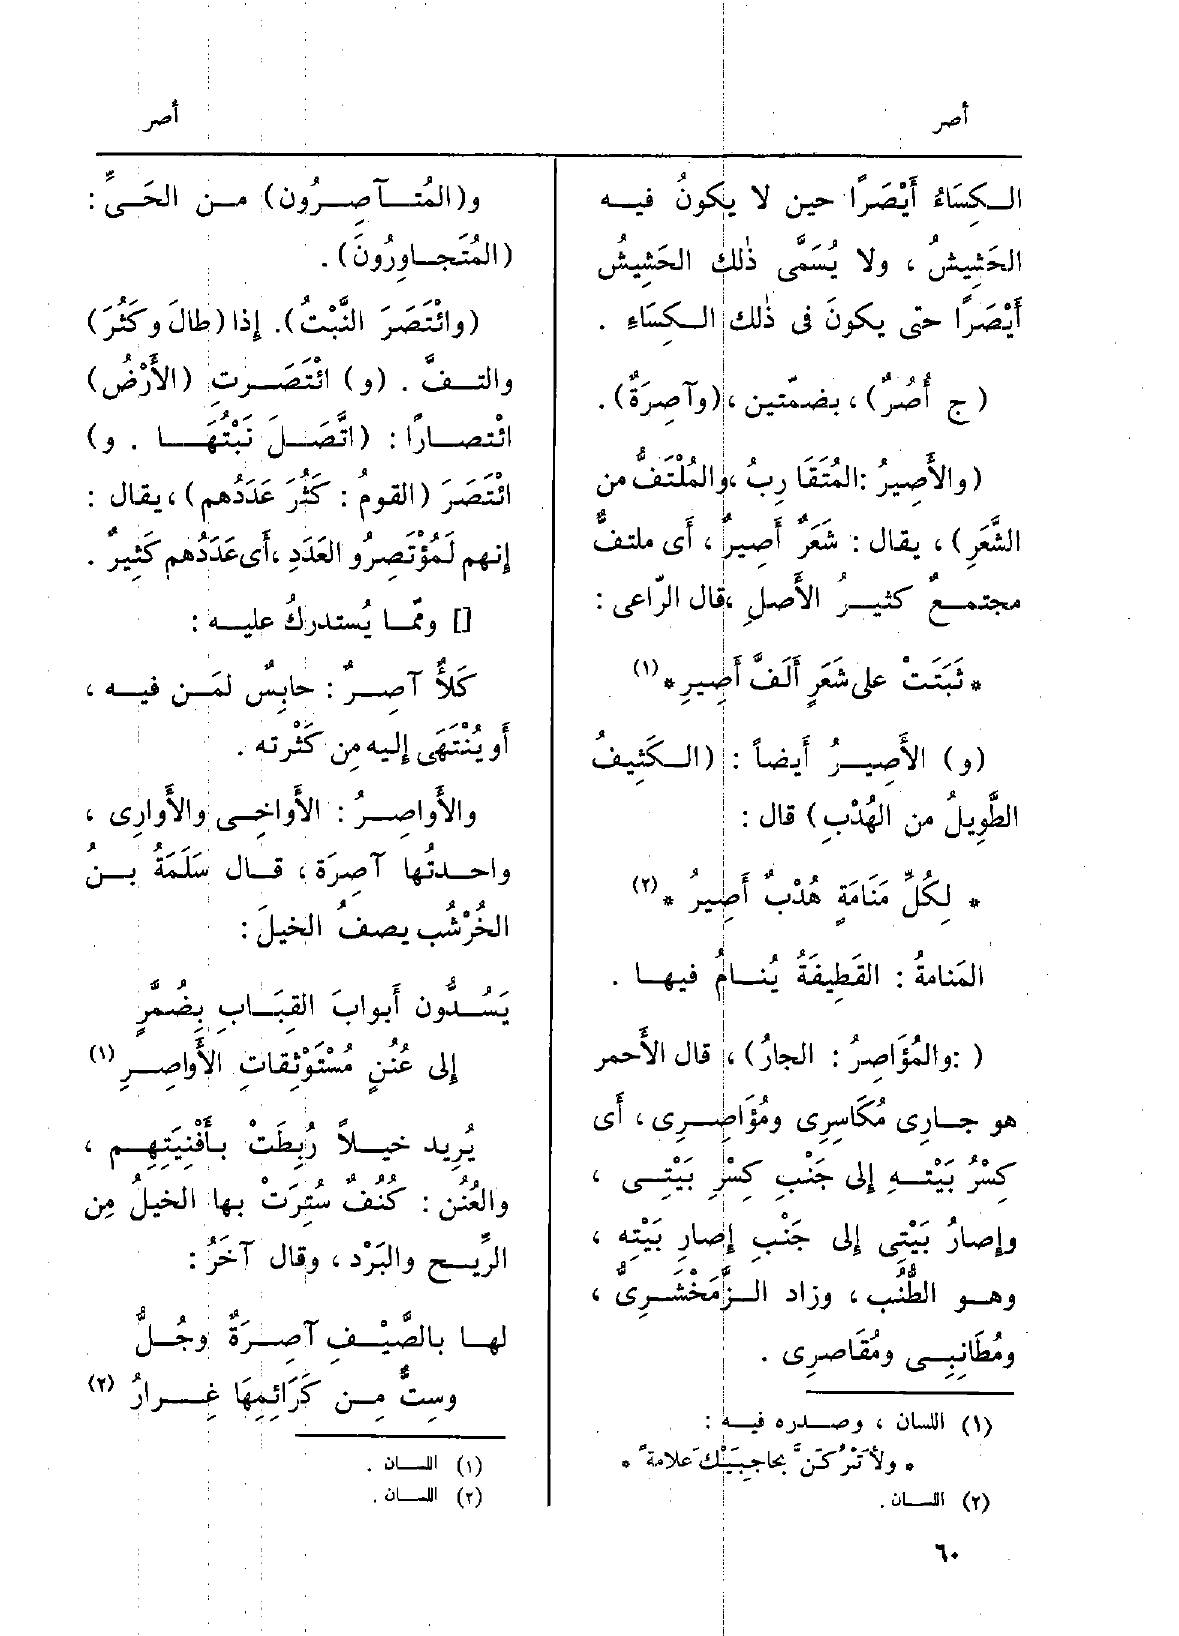 أصر
أصر
الكِسَاءُ أَيْصَرًا حين لا يكونُ فيه
الحَشِيشُ ، ولا يُسَمَّى ذٰلك الحَشِيشُ
أَيْصَرًا حتى يكونَ فى ذٰلك الكِسَاءِ .
( ج أُصُرٌ) ، بضمّتين ، (وآصِرَةٌ) .
(والأَصِيرُ :المُتَقَارِبُ ، والمُلْتَفُّ من
الشَّعَرِ) ، يقال : شَعَرٌ أَصِيرٌ ، أَى ملتفٌّ
مجتمعٌ كثيرُ الأَصلِ ،قال الرّاعى :
* ثَبَتَتْ على شَعَرٍ أَلَفَّ أَصِيرِ * (١)
(و) الأَصِيرُ أَيضاً : (الكَثِيفُ
الطَّوِيلُ من الهُدْبِ) قال :
* لِكُلِّ مَنَامَةٍ هُدْبٌ أَصِيرُ * (٢)
المَنامةُ : القَطِيفَةُ يُنامُ فيها .
( :والمُؤَاصِرُ : الجارُ) ، قال الأَحمر
هو جارِى مُكَاسِرِى ومُؤَاصِرِى ، أَى
كِسْرُ بَيْتهِ إلى جَنْبِ كِسْرِ بَيْتِى ،
وإِصارُ بَيْتِى إلى جَنْبِ إِصارِ بَيْتِه ،
وهو الطُّنُب ، وزاد الزَّمَخْشَرِىُّ ،
ومُطَانِبِى ومُقَاصرِى .
(١) اللسان ، وصدره فيه :
* ولأَتْرُكَنَّ بحاجِبَيْكَ عَلامةً *
(٢) اللسان .
و(المُتآصِرُون) من الحَىِّ :
(المُتَجاوِرُونَ) .
(وائْتَصَرَ النَّبْتُ). إذا (طالَ وكَثُرَ)
والتفَّ . (و) ائْتَصَرتِ (الأَرْضُ)
ائْتصارًا : (اتَّصَلَ نَبْتُهَا . و)
ائْتَصَرَ (القومُ : كَثُرَ عَدَدُهم) ، يقال :
إنهم لَمُؤْتَصِرُو العَدَدِ ،أَى عَدَدُهم كَثِيرٌ .
[] وممّا يُستدركُ عليه :
كَلأٌ آصِرٌ : حابِسٌ لمَن فيه ،
أَو يُنْتَهَى إليه مِن كَثْرته .
والأَواصِرُ : الأَواخِى والأَوارِى ،
واحدتُها آصِرَة ، قال سَلَمَةُ بنُ
الخُرْشُبِ يصفُ الخيلَ :
يَسُدُّون أَبوابَ القِبَابِ بِضُمَّرٍ
إلى عُنُنٍ مُسْتَوْثِقاتِ الأَواصِرِ (١)
يُرِيد خيلاً رُبِطَتْ بأَفْنِيَتِهِم ،
والعُنُن : كُنُفٌ سُتِرَتْ بها الخيلُ مِن
الرِّيح والبَرْد ، وقال آخَرُ :
لها بالصَّيْفِ آصِرَةٌ وجُلٌّ
وسِتٌّ مِن كَرَائِمِهَا غِرارُ (٢)
(١) اللسان .
(٢) اللسان .
٦٠